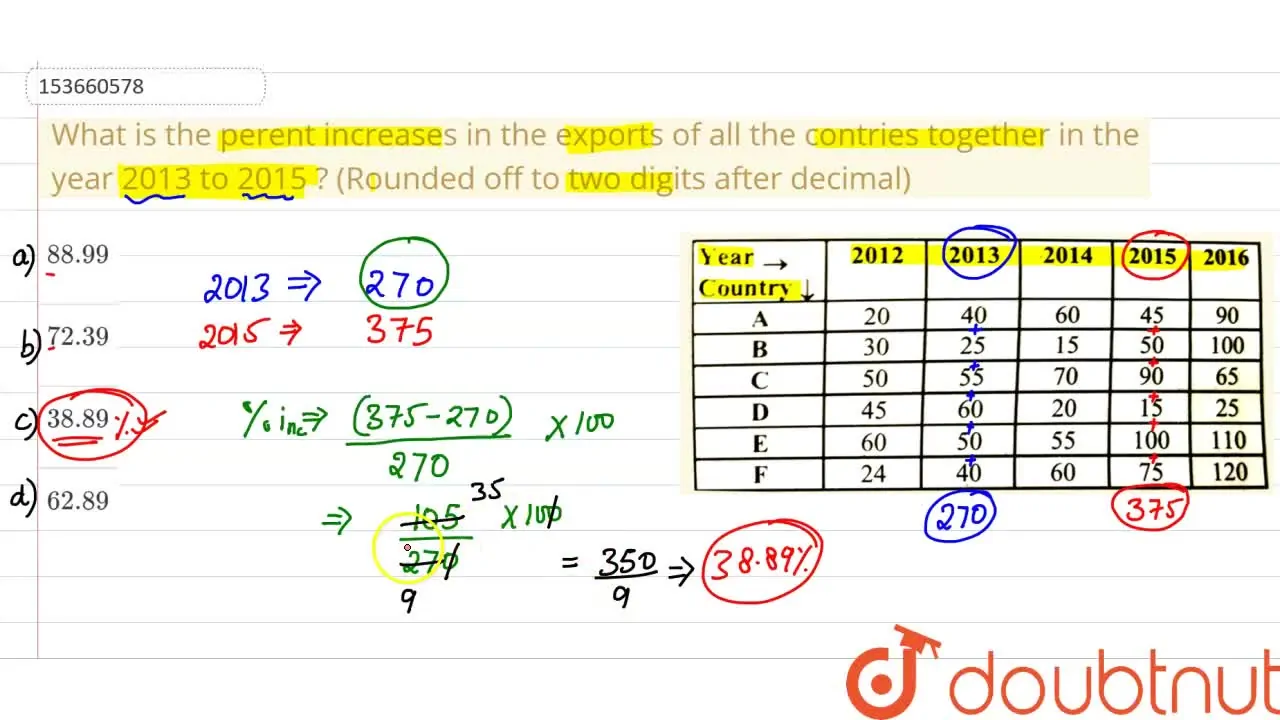 153660578
What is the perent increases in the exports of all the contries together in the
year 2013 to 2015 ? (Rounded off to two digits after decimal)
a) 88.99
b) 72.39
c) 38.89 %
d) 62.89
2013 ⇒ 270
2015 ⇒ 375
% inc ⇒ (375-270) × 100
270
⇒ 105 × 100
270
35
9
= 350 ⇒ 38.89%
9
Year → 2012 2013 2014 2015 2016
Country ↓
A 20 40 60 45 90
B 30 25 15 50 100
C 50 55 70 90 65
D 45 60 20 15 25
E 60 50 55 100 110
F 24 40 60 75 120
270 375
doubtnut